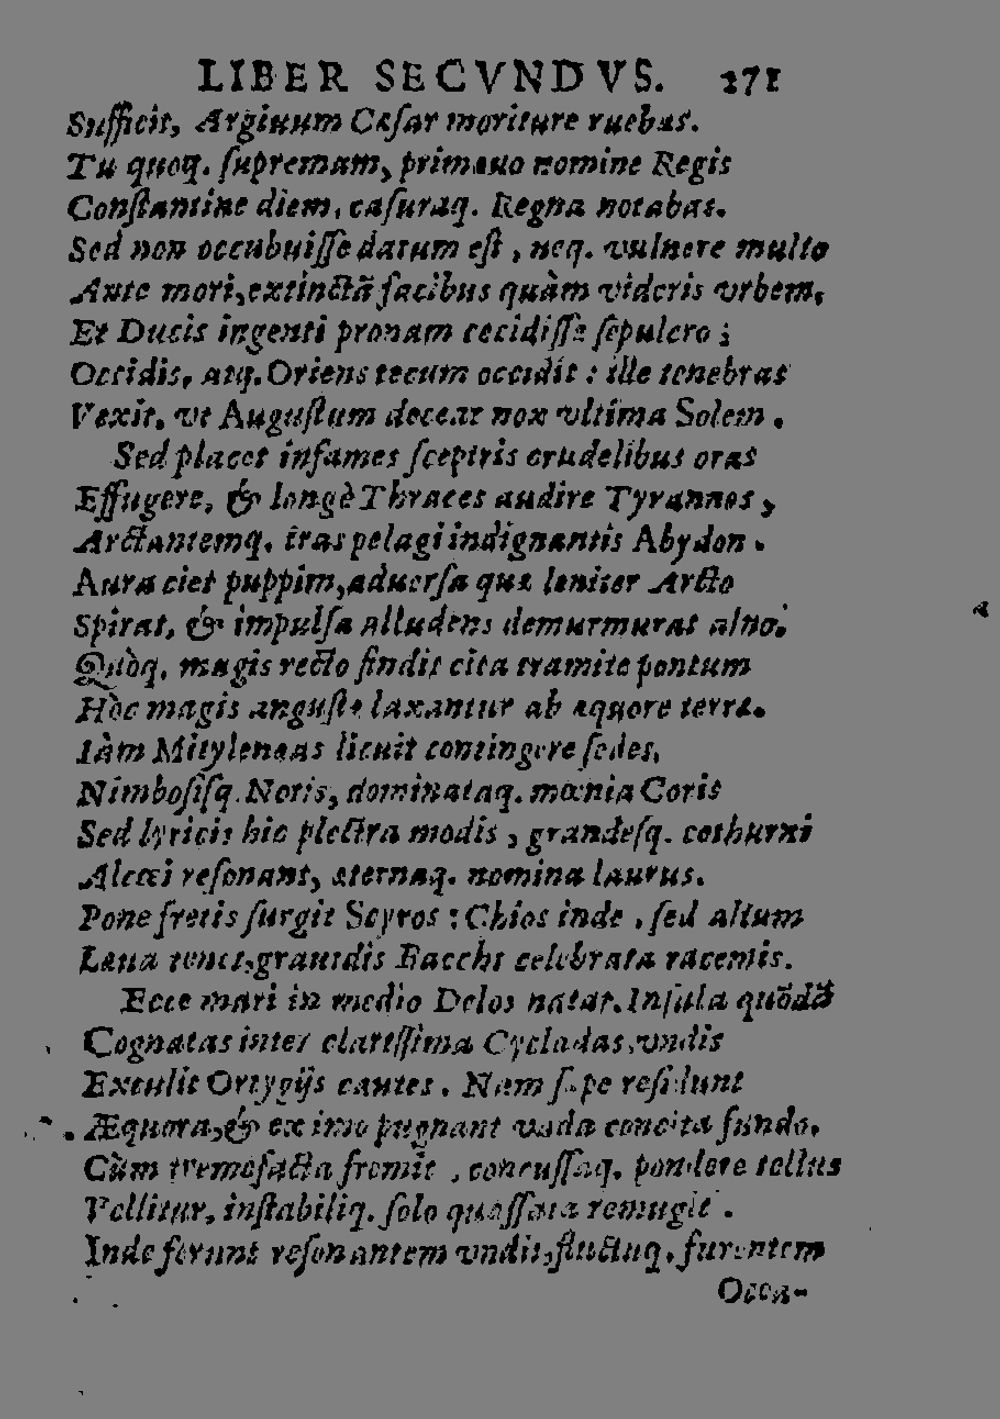 LIBER SECVNDVS. 271
Sufficit, Argiuum Cæsar moriture ruebas.
Tu quoq. supremam, primæuo nomine Regis
Constantine diem, casuraq. Regna notabas.
Sed non occubuisse datum est, neq. vulnere multo
Ante mori, extinctã facibus quàm videris vrbem,
Et Ducis ingenti pronam cecidisse sepulcro;
Occidis, atq. Oriens tecum occidit: ille tenebras
Vexit, vt Augustum deceat nox vltima Solem.
Sed placet infames sceptris crudelibus oras
Effugere, & longè Thraces audire Tyrannos,
Arctantemq. iras pelagi indignantis Abydon.
Aura ciet puppim, aduersa quæ leniter Arcto
Spirat, & impulsa alludens demurmurat alno.
Quòq. magis recto findit cita tramite pontum
Hòc magis angustæ laxantur ab æquore terræ.
Iàm Mitylenæas licuit contingere sedes,
Nimbosisq. Notis, dominataq. mœnia Coris
Sed lyricis hic plectra modis, grandesq. cothurni
Alcæi resonant, æternaq. nomina laurus.
Pone fretis surgit Scyros: Chios inde, sed altum
Læua tenet, grauidis Bacchi celebrata racemis.
Ecce mari in medio Delos natat. Insula quõdã
Cognatas inter clarissima Cycladas, vndis
Extulit Ortygijs cautes. Nam sæpe residunt
Æquora, & ex imo pugnant vada concita fundo,
Cùm tremefacta fremit, concussaq. pondere tellus
Vellitur, instabiliq. solo quassata remugit.
Inde ferunt resonantem vndis, fluctuq. furentem
Occa-